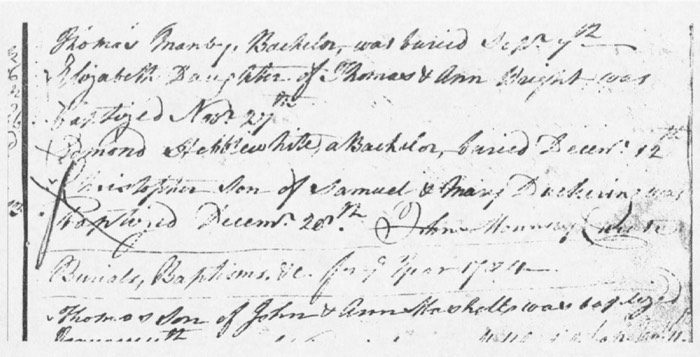 Thomas Manby, Bachelor, was buried Sepr. 7th
Elizabeth Daughter of Thomas & Ann Bright was
baptized Novr. 27th
Edmond Hebblewhite, a Bachelor, buried Decemr. 12th
Christopher Son of Samuel & Mary Duckering was
baptized Decemr. 28th. John Mounsey Curate
Burials, Baptisms, &c. for ye Year 1784
Thomas son of John & Ann was baptized